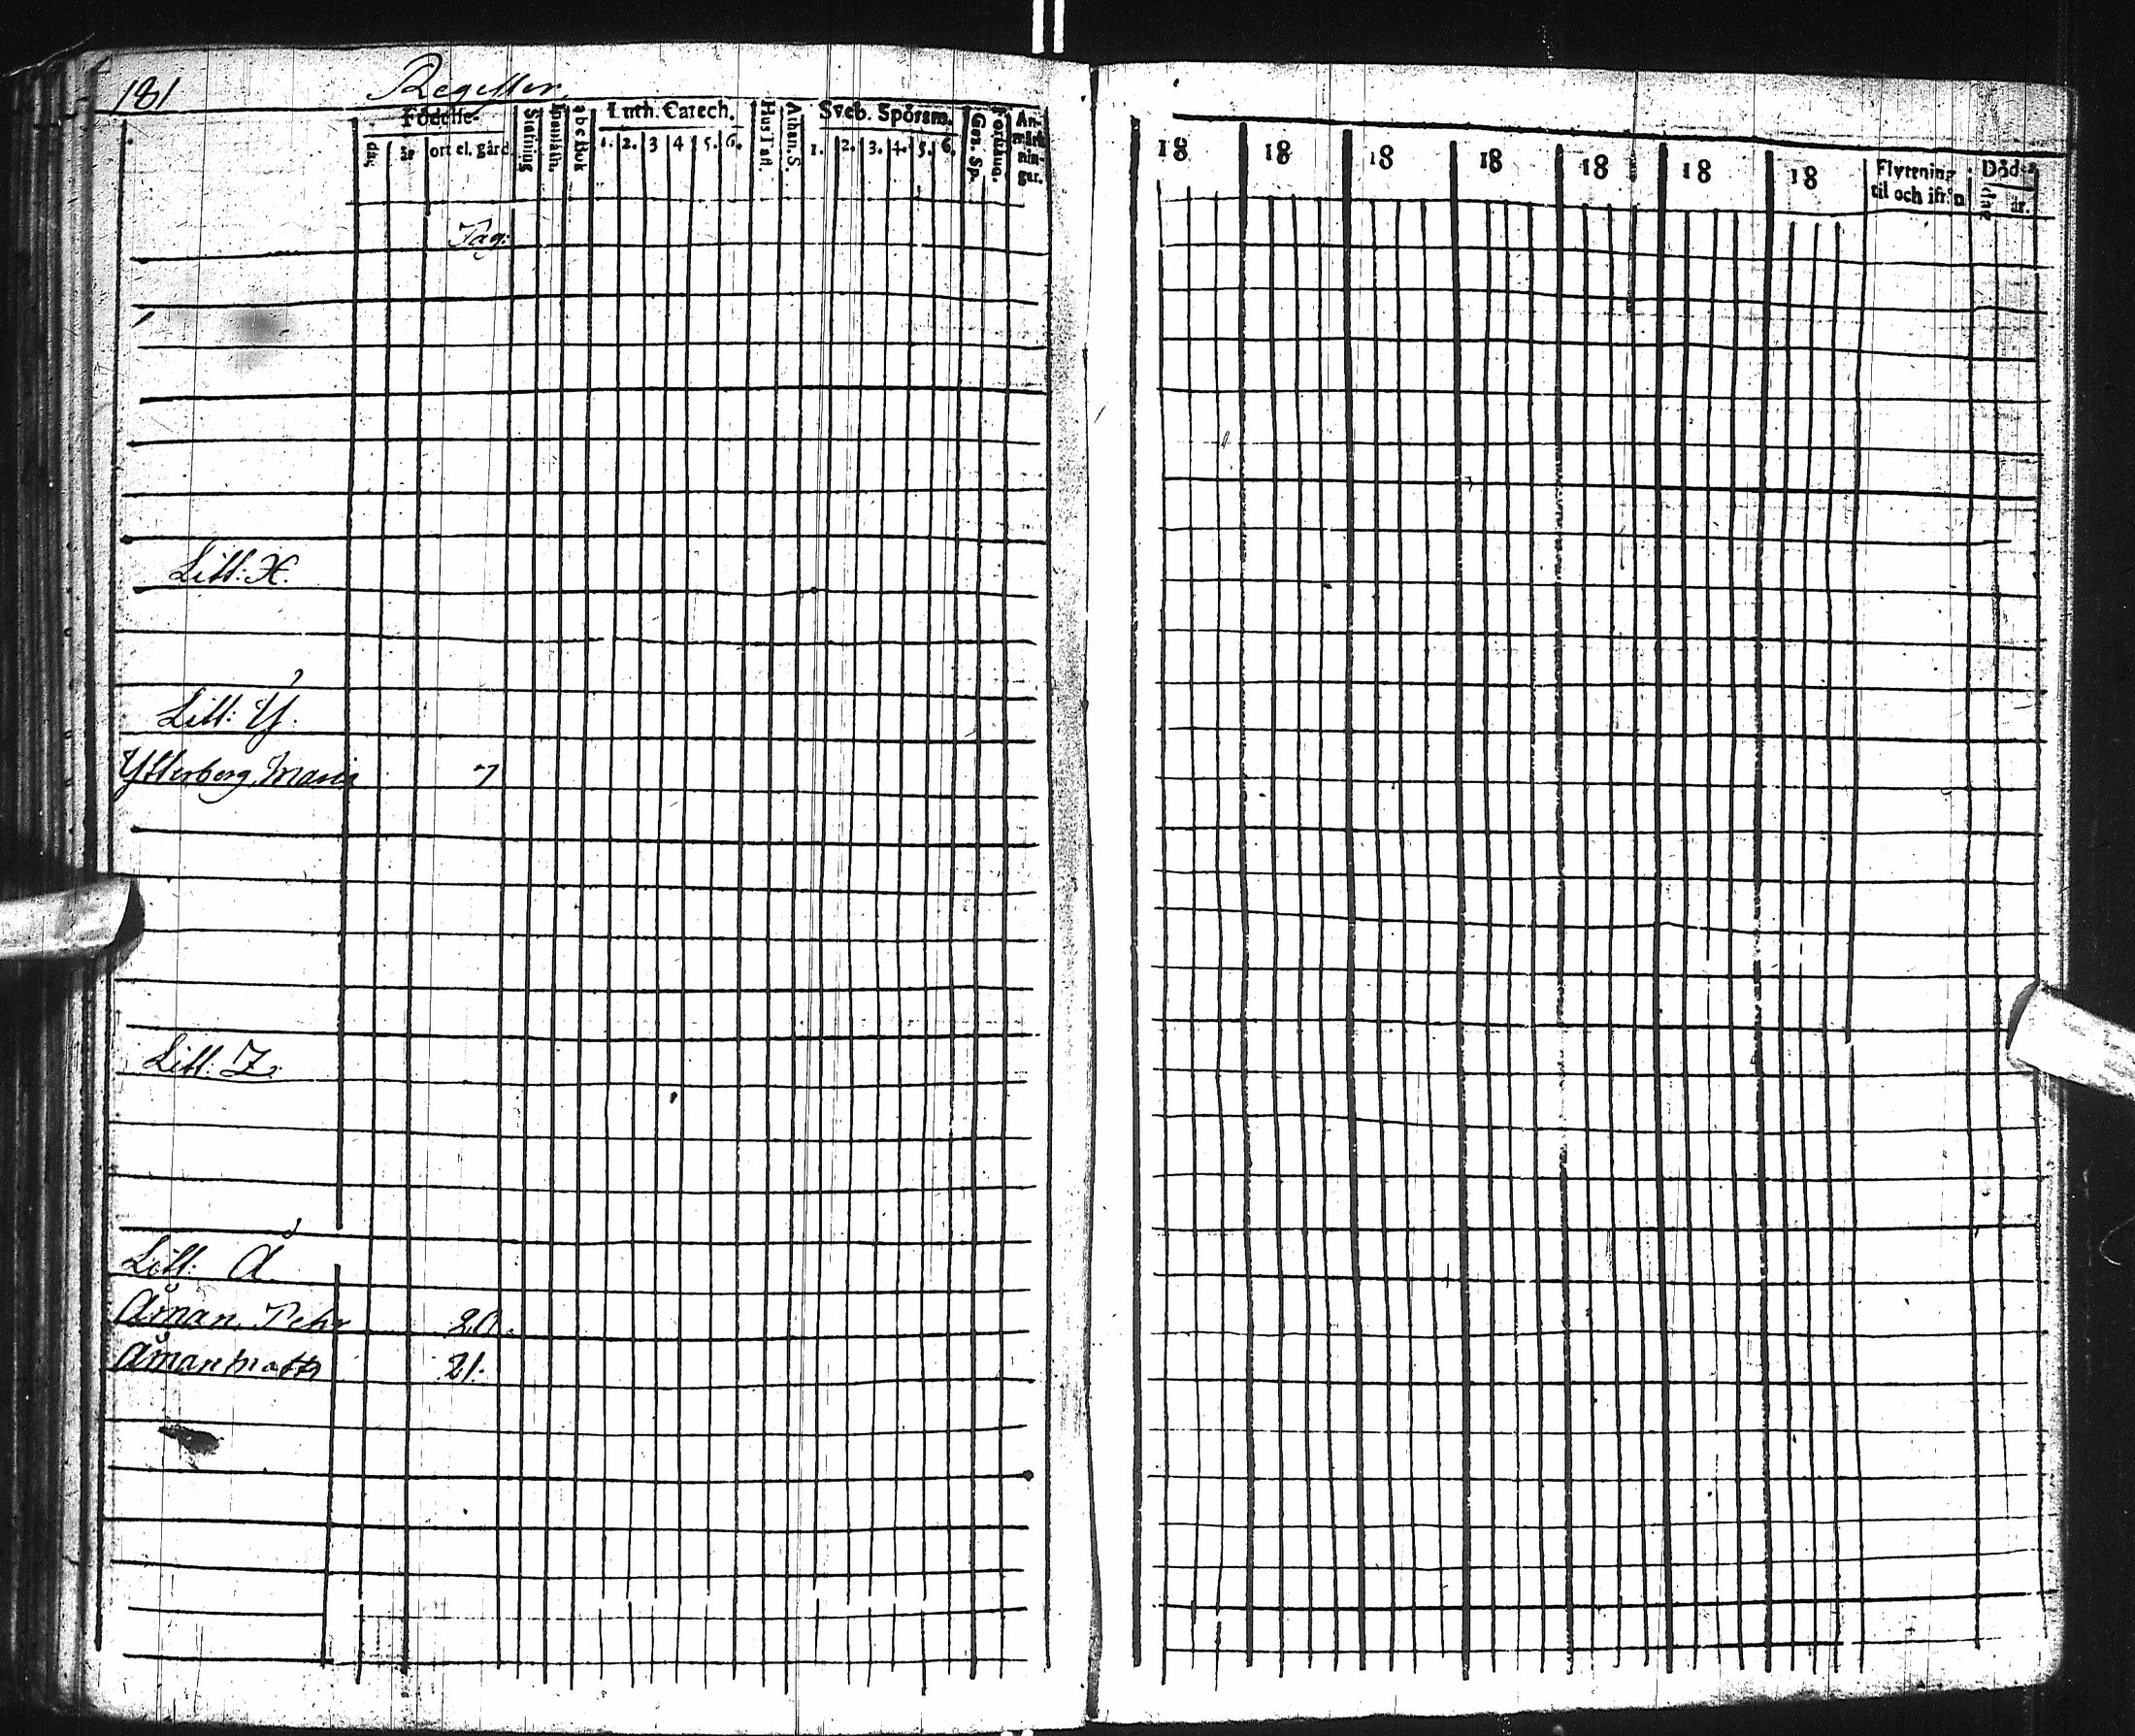 181 Register
Födelse-
dag år ort el. gård
Stafning
abc Bok
Luth. Catech.
1. 2. 3 4 5. 6.
Hus Tafl.
Athan. S.
Sveb. Spörsm.
1. 2. 3. 4. 5. 6.
Ger. Sp.
An-
märk
nin-
gar.
18 18 18 18 18 18 18
Flyttning
til och ifrån
Död-
dag år.
Pag:
Litt: X.
Litt: Y.
Ytterberg, Maria 7
Litt: Z.
Litt: Å
Åman, Pehr 20.
Åman Matts 21.